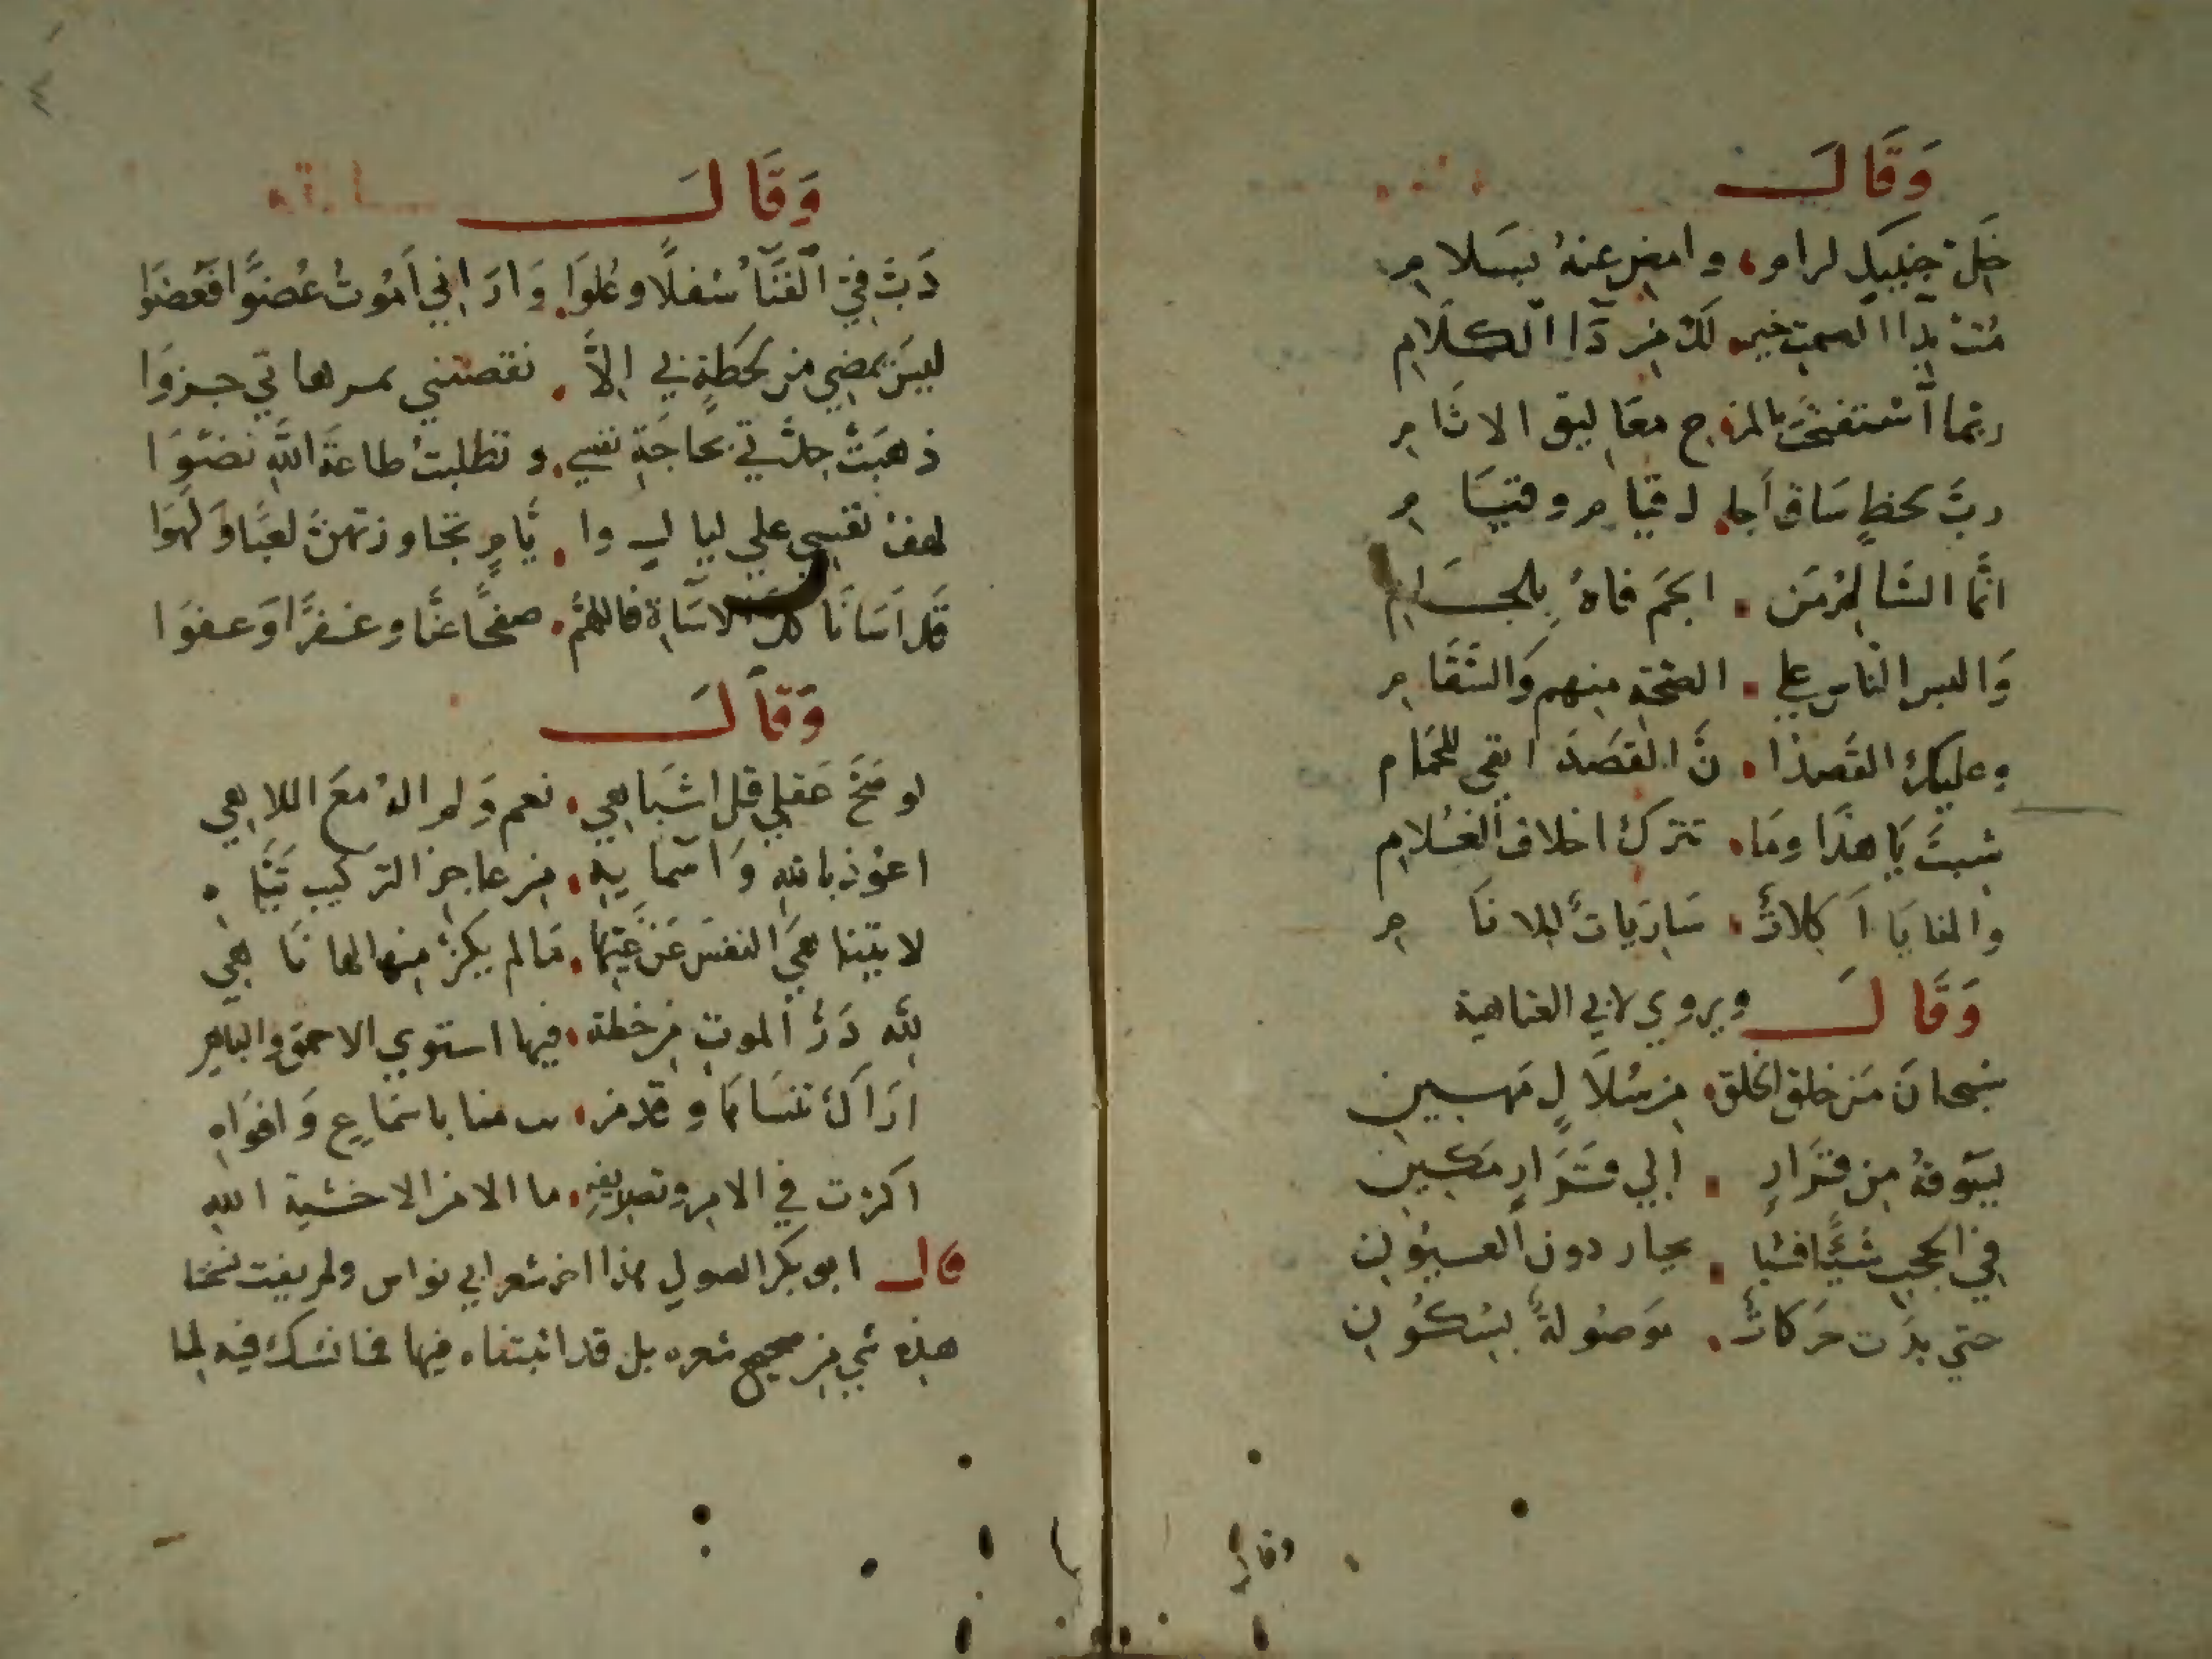 وَقَالَ
خَلّ جنبيك لرام وامض عنهُ بسَلام
مُت بدآ الصمت خير لك من دَآ الكلَام
ربّما آستفتحت بالمزح مغَاليق الاثام
ربَّ لحظٍ سَاق آجا ل قيام وقيَام
انّما السَّالم مَن الجَم فاهُ بلجَام
وَالبس الناس علي الصّحة منهم وَالسَّقَام
وعليك القَصدَ ا نَّ القصَدَ ابقي للحمَام
شبتَ يَا هذَا ومَا تترك اخلاق الغلام
والمنايَا اَكلاتٌ شَاربَاتٌ للانَام
وَقَالَ ويروي لابي العتاهية
سبحانَ مَن خلق الخلق من سُلاَلٍ مَهين
يسَوقهُ من قَرَارٍ الي قَرَارٍ مَكين
في الحجب شيًّا فشيا يحار دون العيُون
حتي بدَت حَركاتٌ موَصُولةٌ بسُكُون
وقال
وَقَالَ
دَبَّ فيّ الفنَآ سُفلًا وعُلوَا وَارَاني اَموُتُ عُضوًا فَعُضوَا
ليسَ يمضي من لحَظةٍ بي الاَّ نقصتني بمرها بي جزوَا
ذهبَتْ جدَّتي بحَاجَةِ نفسي وتطلبتُ طاعةَ اللهِ نضوَا
لهفَ نفسي علي ليالٍ وا يَّامٍ تجاوزتهنَّ لعبًا وَلهوَا
قَد اَسَانَا كل الاسَآة فاللهُمَّ صفحًا عنَّا وغفرًا وَعفوَا
وَقَالَ
لو صَحَّ عَقلي قل اشبَاهي نعم وَلم الهُ معَ اللاهي
اعوُذ بالله وَاسمآيهِ من عاجز التركيب تيَّاه
لا تتناهي النفسَ عَن غَيِّها مَا لم يكنْ منها لها نَاهي
للّه دَرُّ الموت من خطة فيها استوي الاحمق والداهي
ارَاكَ تنسَانَا وقد مر ت منا باسمَاعٍ وَافوَاهِ
اكثرت في الامر وتصريفهِ ما الامر الا خشية الله
قال ابو بكر الصولي هذا اخر شعر ابي نواس ولم يفت نسختنا
هذه شي من صحيح شعره بل قد اثبتناه فيها مما نشك فيه لما